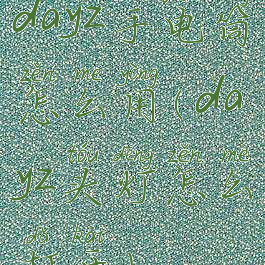 dayz手电筒
zěn me yòng
怎么用(da
tóu dēng zěn me
yz头灯怎么
dǎ kāi
打开)